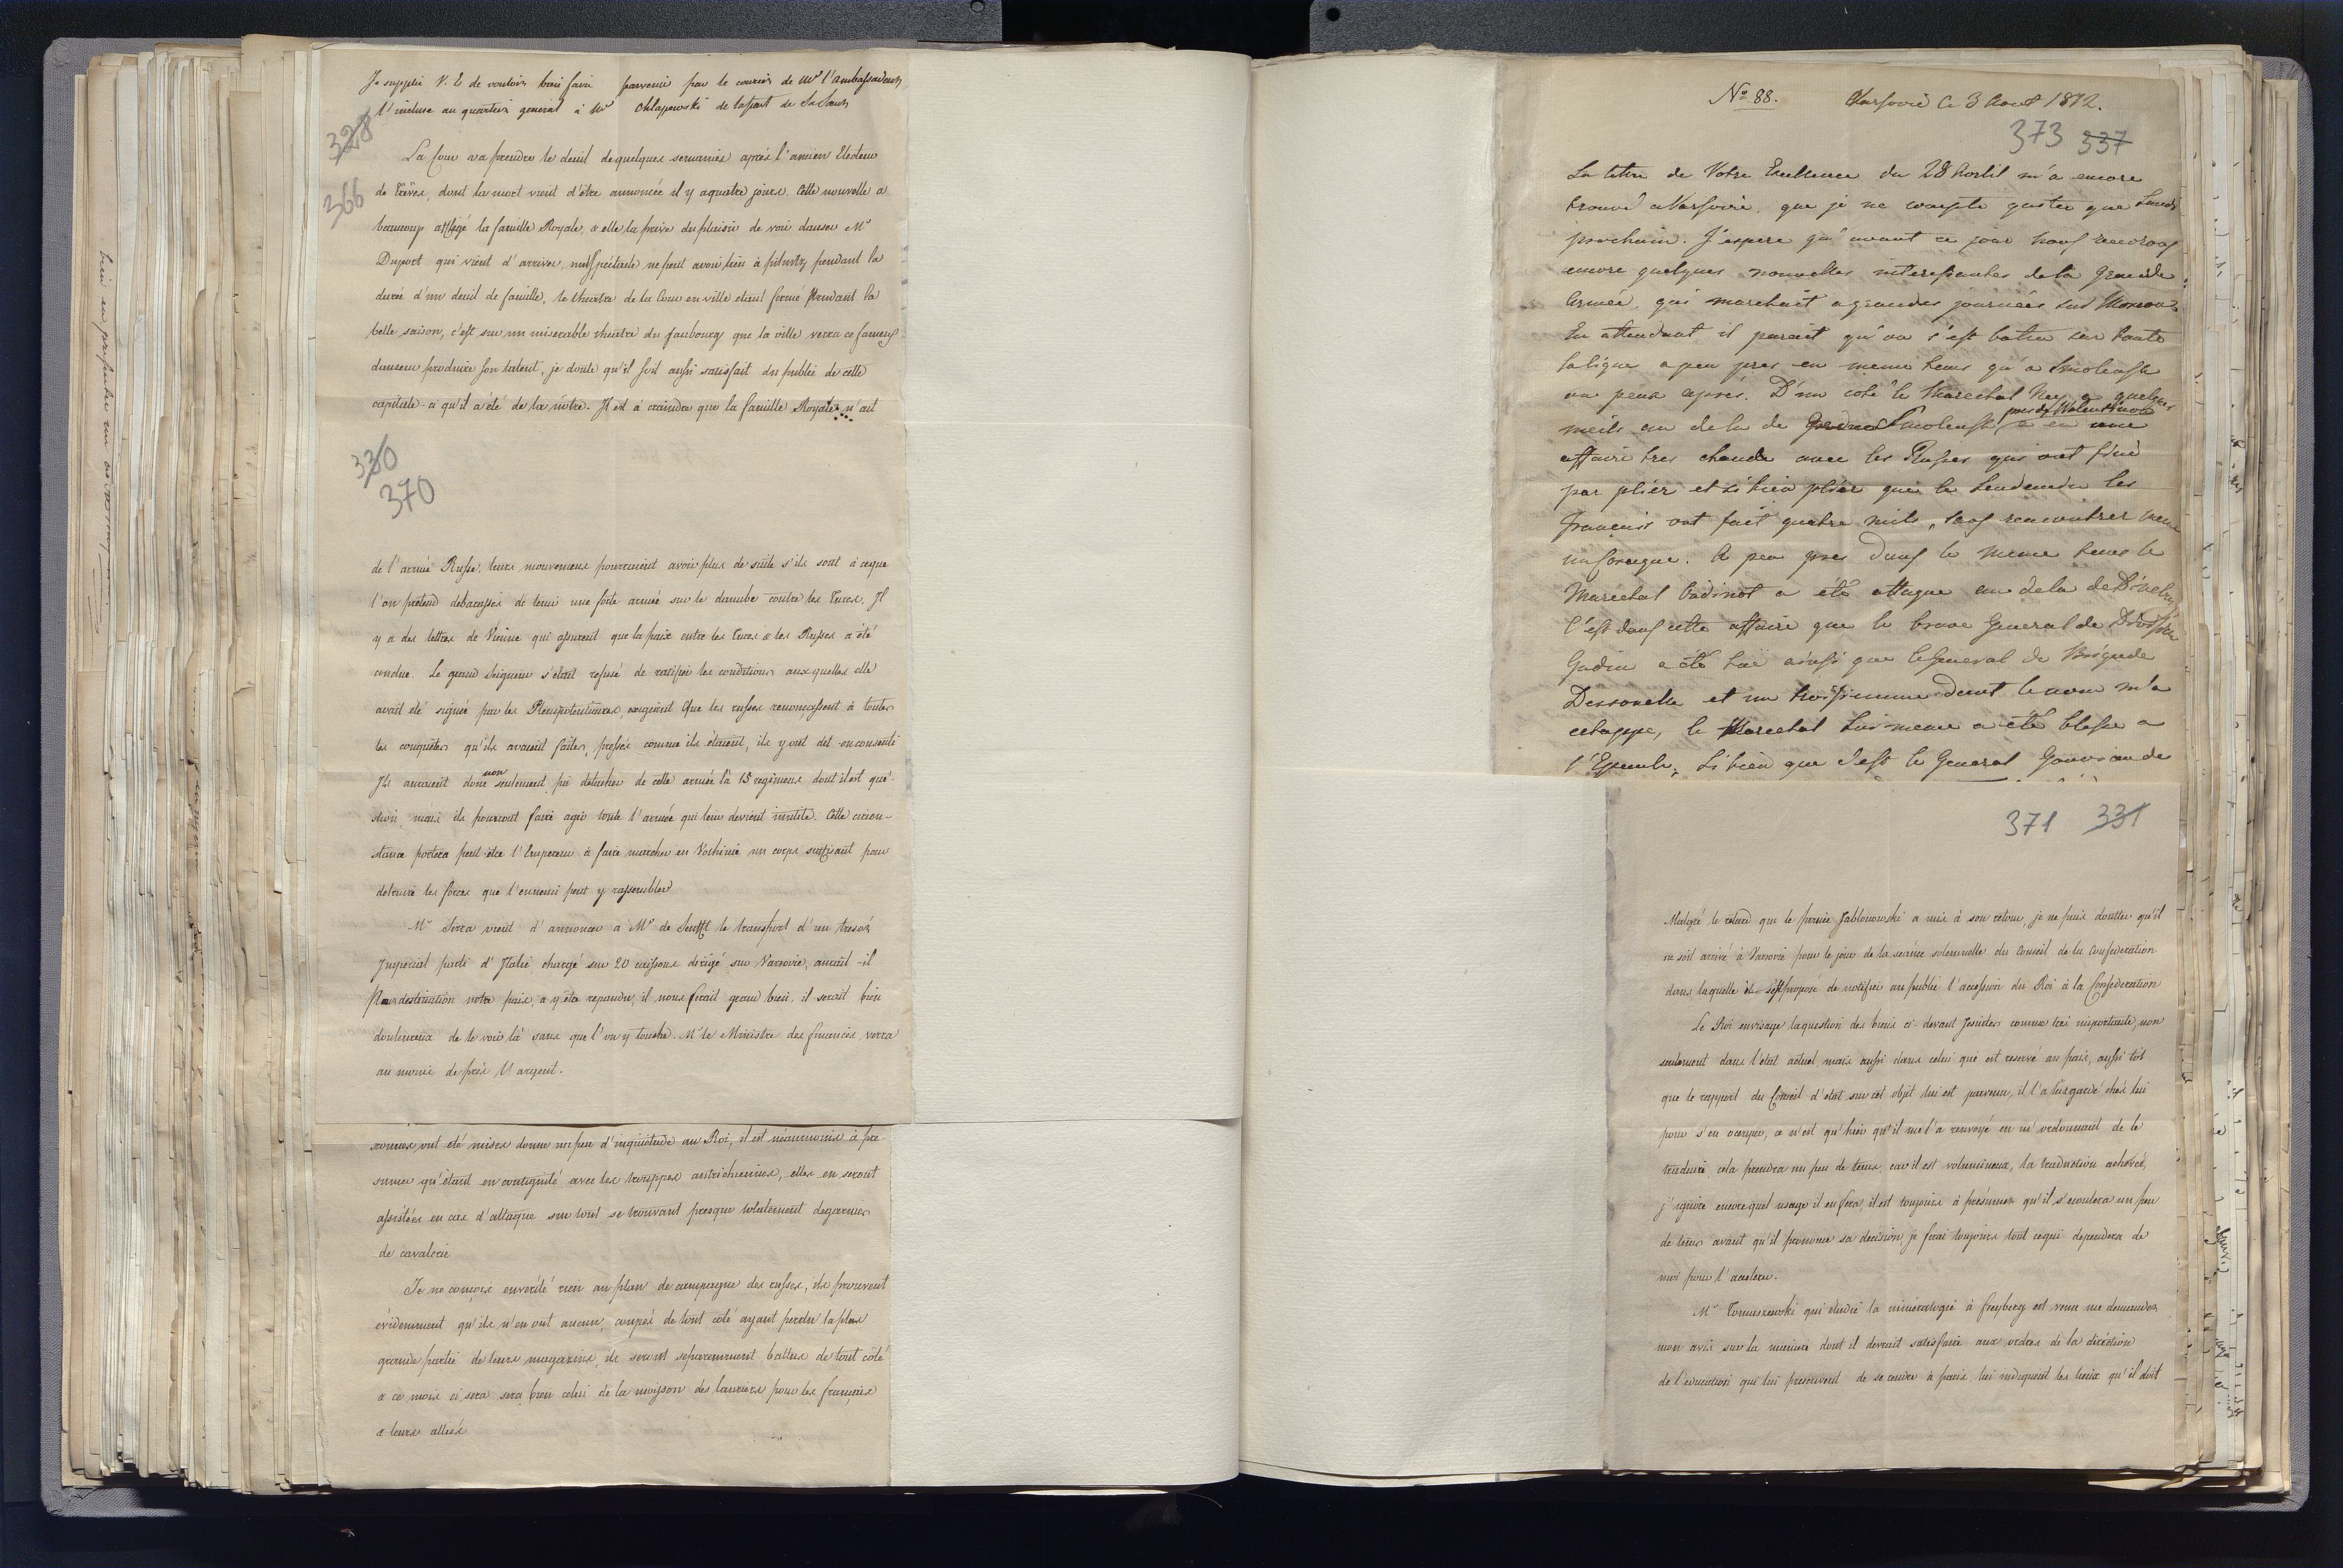 Je supplie V. E de vouloir bien faire parvenir par le courier de Mr l'ambassadeur
l'incluse au quartier general à Mr Chlapowski de la part de sa Sœur
328
366
La Cour va prendre le deuil de quelques semaines après l'ancien Electeur
de Trêves, dont la mort vient d'être annoncée il y a quatre jours. Cette nouvelle a
beaucoup affligé la famille Royale, & elle la prive du plaisir de voir danser Mr
Duport qui vient d'arriver, nul spectacle ne peut avoir lieu à pilnitz pendant la
durée d'un deuil de famille, le theatre de la Cour en ville etant fermé pendant la
belle saison, c'est sur un miserable theatre du faubourg que la ville verra ce fameux
danseur produire son talent, je doute qu'il soit aussi satisfait du public de cette
capitale-ci qu'il a été de la nôtre. Il est à craindre que la famille Royale n'ait
330
370
de l'armée Russe, leurs mouvemens pourraient avoir plus de suite s'ils sont à ceque
l'on prétend debarassés de tenir une forte armée sur le danube contre les Turcs. Il
y a des lettres de Vienne qui assurent que la paix entre les Turcs & les Russes a été
conclue. Le grand Seigneur s'était refusé de ratifier les conditions aux quelles elle
avait été signée par les Plenipotentiaires, exigeant que les russes renonçassent à toutes
les conquêtes qu'ils avaient faites, pressés comme ils étaient, ils y ont dit-on consenti
Ils auraient donc non seulement pû detacher de cette armée là 15 regimens dont il est que-
stion, mais ils pourront faire agir toute l'armée qui leur devient inutile. Cette circon-
stance portera peut-être l'Empereur à faire marcher en Volhinie un corps suffisant pour
detruire les forces que l'ennemi peut y rassembler
Mr Serra vient d'annoncer à Mr de Senfft le transport d'un tresor
Imperial parti d'Italie chargé sur 20 caissons dirigé sur Varsovie, aurait-il
pour destination notre païs, a y etre repandu, il nous ferait grand bien, il serait bien
douloureux de le voir là sans que l'on y touche. Mr le Ministre des finances verra
au moins de près l'argent.
ont été mises donne un peu d'inquiétude au Roi, il est néanmoins à pre-
sumer qu'étant en contiguité avec les trouppes autrichiennes, elles en seront
assistées en cas d'attaque sur tout se trouvant presque totalement degarnies
de cavalerie
Je ne conçois enverité rien au plan de campagne des russes, ils prouvent
évidemment qu'ils n'en ont aucun, coupés de tout coté ayant perdu la plus
grande partie de leurs magazins, ils seront séparemment battus de tout côté
& ce mois ci sera sera bien celui de la moisson des lauriers pour les français
& leurs alliés
No 88. Varsovie le 3 Aout 1812.
373 337
La lettre de Votre Excellence du 28 m'a encore
trouvé a Varsovie, que je ne compte quitter que Lundi
prochain. J'espere qu'avant ce jour nous recevrons
encore quelques nouvelles interessantes de la grande
Armée, qui marchait a grandes journées sur Moscou.
En attendant il parait qu'on s'est battu sur toute
la ligne a peu pres en meme tems qu'a Smolensk
ou peu apres. D'un coté le Marechal Ney a quelques
mils au dela de Smolensk pres de Walentinow a eu une
affaire tres chaude avec les Russes qui ont fini
par plier et si bien plier que le lendemain les
français ont fait quatre mils, sans rencontrer meme
un Cosaque. A peu pres dans le meme tems le
Marechal Oudinot a été attaqué au dela de
C'est dans cette affaire que le brave General de Division
Gudin a été tué ainsi que le General de Brigade
et un troisieme dont le nom m'a
echappe, le Marechal lui meme a été blessé a
l'Epaule, si bien que c'est le General Gouvion de
371 331
Malgré le retard que le prince Jablonowski a mis à son retour, je ne puis douter qu'il
ne soit arrivé à Varsovie pour le jour de la séance solemnelle du Conseil de la Confederation
dans laquelle il s'est proposé de notifier au public l'accession du Roi à la Confederation
Le Roi envisage la question des biens ci-devant Jesuites comme très importante, non
seulement dans l'état actuel, mais aussi dans celui qui est reservé au païs, aussi tôt
que le rapport du Conseil d'état sur cet objet lui est parvenu, il l'a gardé chés lui
pour s'en occuper, ce n'est qu'hier qu'il me l'a renvoyé en m'ordonnant de le
traduire, cela prendra un peu de tems, car il est volumineux, la traduction achevée,
j'ignore encore quel usage il en fera, il est toujours à présumer qu'il s'ecoulera un peu
de tems avant qu'il prononce sa decision, je ferai toujours tout cequi dependra de
moi pour l'accelerer.
Mr Tomaszewski qui étudie la minéralogie à freyberg est venu me demander
mon avis sur la maniere dont il devrait satisfaire aux ordres de la direction
de l'education qui lui prescrivent de se rendre à paris, lui indiquent les lieux qu'il doit